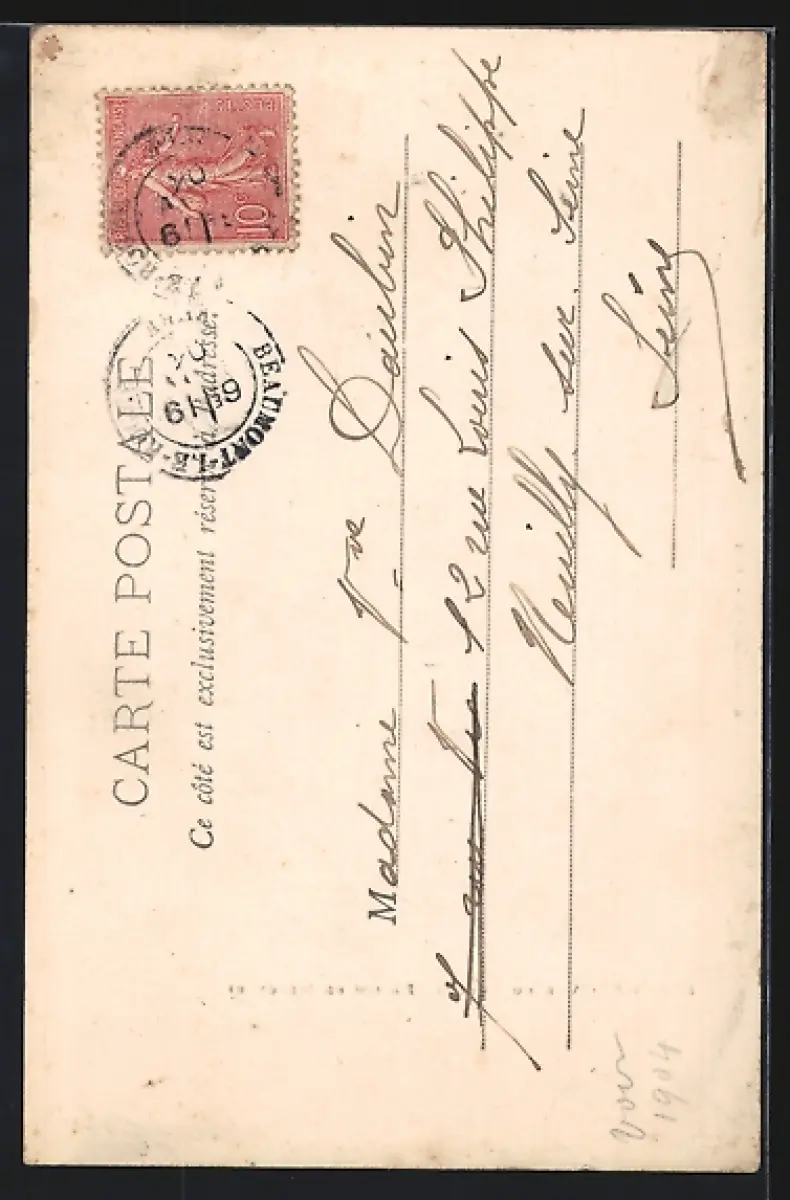 CARTE POSTALE
Ce côté est exclusivement réservé à l'adresse.
10
BEAUMONT-LE-R
Madame Vve Daubin
12 rue Louis Philippe
Neuilly sur Seine
Seine
voir
1904